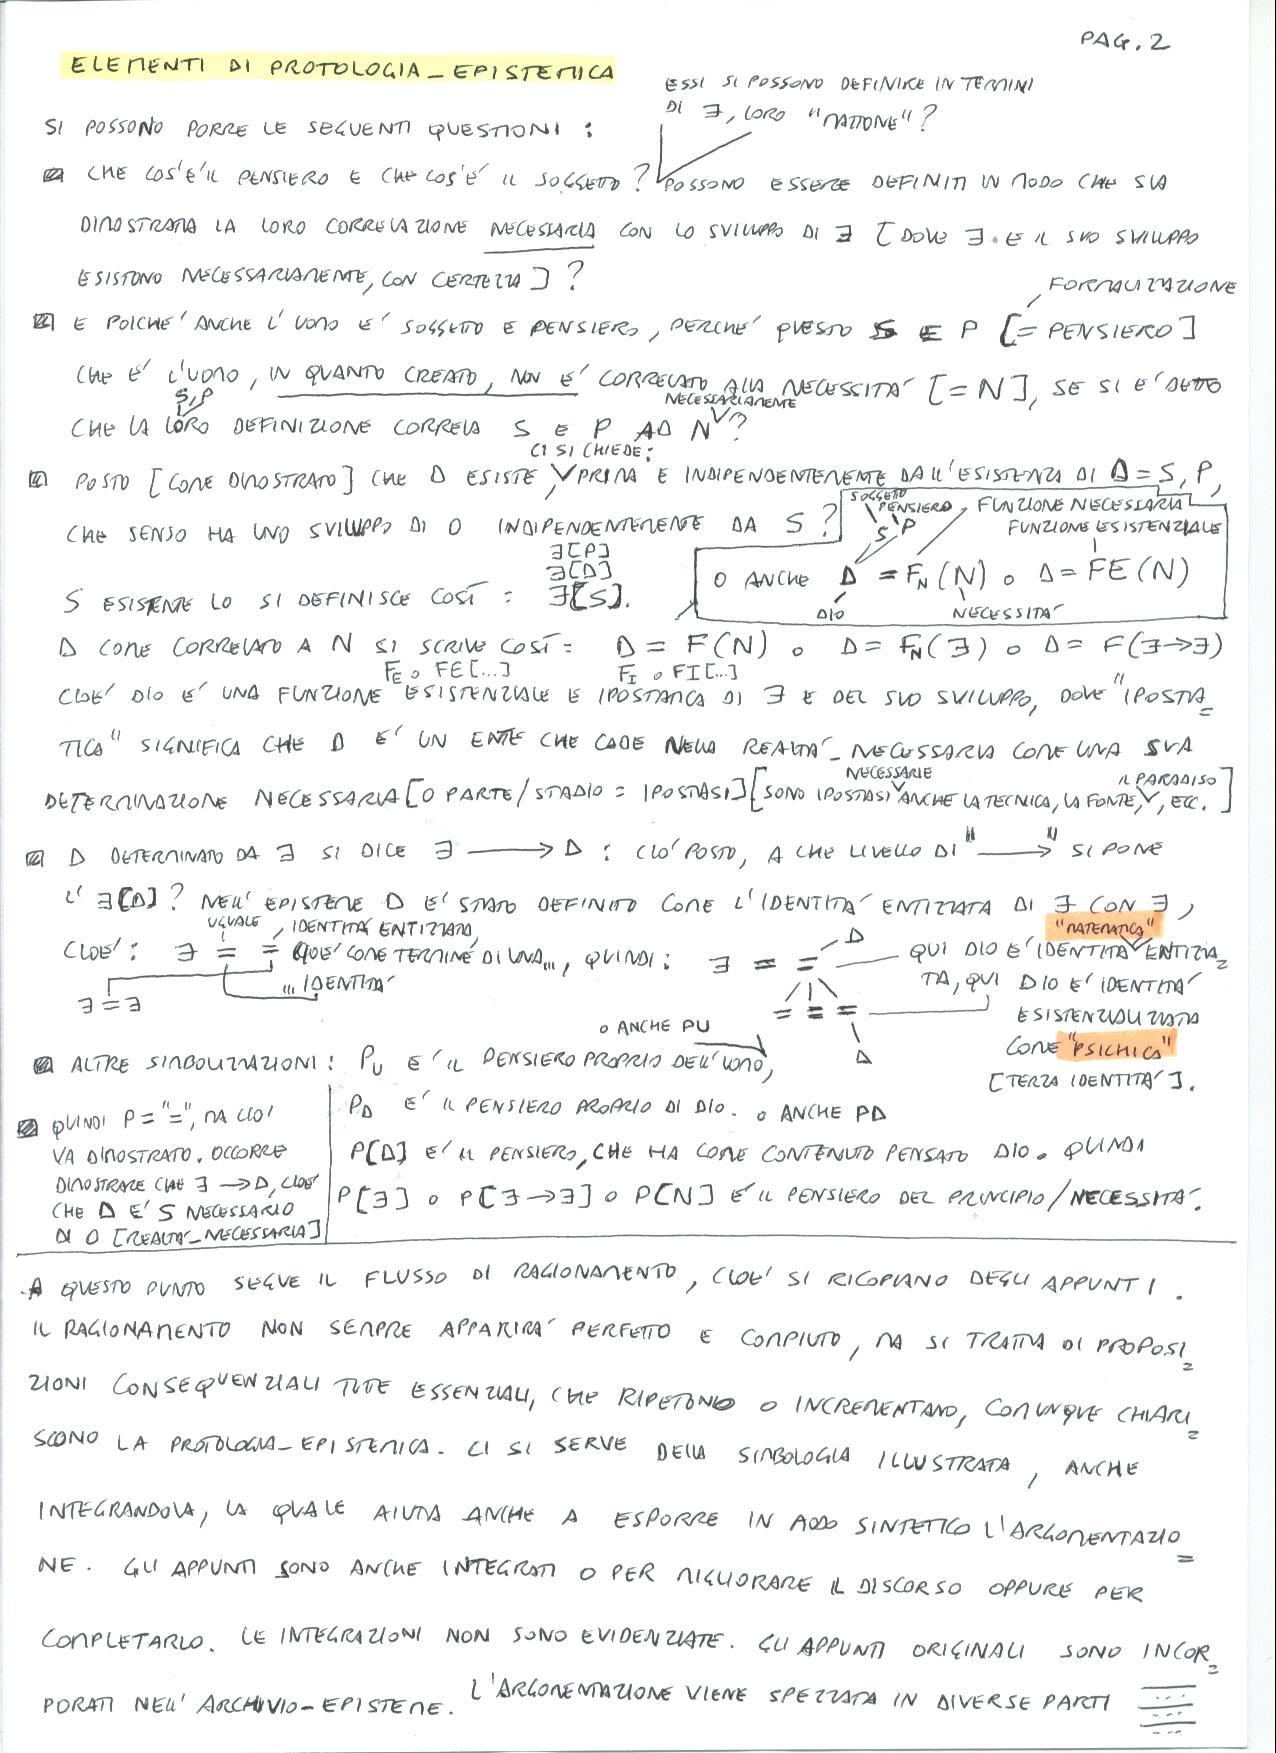 PAG. 2
ELEMENTI DI PROTOLOGIA_EPISTEMICA
ESSI SI POSSONO DEFINIRE IN TERMINI
DI ∃, LORO "MATTONE"?
SI POSSONO PORRE LE SEGUENTI QUESTIONI:
CHE COS'E' IL PENSIERO E CHE COS'E' IL SOGGETTO? POSSONO ESSERE DEFINITI IN MODO CHE SIA
DIMOSTRATA LA LORO CORRELAZIONE NECESSARIA CON LO SVILUPPO DI ∃ [DOVE ∃ E IL SUO SVILUPPO
ESISTONO NECESSARIAMENTE, CON CERTEZZA]?
FORMALIZZAZIONE
E POICHE' ANCHE L'UOMO E' SOGGETTO E PENSIERO, PERCHE' QUESTO S E P [= PENSIERO]
CHE E' L'UOMO, IN QUANTO CREATO, NON E' CORRELATO ALLA NECESSITA' [=N], SE SI E' DETTO
S,P
NECESSARIAMENTE
CHE LA LORO DEFINIZIONE CORRELA S E P AD N?
CI SI CHIEDE:
POSTO [COME DIMOSTRATO] CHE D ESISTE PRIMA E INDIPENDENTEMENTE DALL'ESISTENZA DI D = S, P,
CHE SENSO HA UNO SVILUPPO DI O INDIPENDENTEMENTE DA S?
SOGGETTO
PENSIERO
FUNZIONE NECESSARIA
FUNZIONE ESISTENZIALE
S,P
O ANCHE D = FN(N) O D = FE(N)
DIO
NECESSITA'
∃[P]
∃[D]
S ESISTENTE LO SI DEFINISCE COSI': ∃[S].
D COME CORRELATO A N SI SCRIVE COSI': D = F(N) O D = FN(∃) O D = F(∃→∃)
FE O FE[...]
FI O FI[...]
CIOE' DIO E' UNA FUNZIONE ESISTENZIALE E IPOSTATICA DI ∃ E DEL SUO SVILUPPO, DOVE "IPOSTA=
TICA" SIGNIFICA CHE D E' UN ENTE CHE CADE NELLA REALTA'_NECESSARIA COME UNA SUA
NECESSARIE
IL PARADISO
DETERMINAZIONE NECESSARIA [O PARTE/STADIO = IPOSTASI] [SONO IPOSTASI ANCHE LA TECNICA, LA FONTE, , ETC.]
D DETERMINATO DA ∃ SI DICE ∃ ⟶ D: CIO' POSTO, A CHE LIVELLO DI "⟶" SI PONE
L'∃[D]? NELL'EPISTEME D E' STATO DEFINITO COME L'IDENTITA' ENTIZZATA DI ∃ CON ∃,
UGUALE
IDENTITA' ENTIZZATA,
CIOE': ∃ = = CIOE' COME TERMINE DI UNA..., QUINDI: ∃ = =
... IDENTITA'
∃ = ∃
D
= = =
D
"MATEMATICA"
QUI DIO E' IDENTITA' ENTIZZA=
TA, QUI DIO E' IDENTITA'
ESISTENZIALIZZATA
COME "PSICHICA"
[TERZA IDENTITA'].
O ANCHE PU
ALTRE SIMBOLIZZAZIONI: PU E' IL PENSIERO PROPRIO DELL'UOMO,
PD E' IL PENSIERO PROPRIO DI DIO. O ANCHE PD
P[D] E' IL PENSIERO, CHE HA COME CONTENUTO PENSATO DIO. QUINDI
P[∃] O P[∃→∃] O P[N] E' IL PENSIERO DEL PRINCIPIO/NECESSITA'.
QUINDI P = "=", MA CIO'
VA DIMOSTRATO. OCCORRE
DIMOSTRARE CHE ∃ → D, CIOE'
CHE D E' S NECESSARIO
DI O [REALTA'_NECESSARIA]
A QUESTO PUNTO SEGUE IL FLUSSO DI RAGIONAMENTO, CIOE' SI RICOPIANO DEGLI APPUNTI.
IL RAGIONAMENTO NON SEMPRE APPARIRA' PERFETTO E COMPIUTO, MA SI TRATTA DI PROPOSI=
ZIONI CONSEQUENZIALI TUTTE ESSENZIALI, CHE RIPETONO O INCREMENTANO, COMUNQUE CHIARI=
SCONO LA PROTOLOGIA_EPISTEMICA. CI SI SERVE DELLA SIMBOLOGIA ILLUSTRATA, ANCHE
INTEGRANDOLA, LA QUALE AIUTA ANCHE A ESPORRE IN MODO SINTETICO L'ARGOMENTAZIO=
NE. GLI APPUNTI SONO ANCHE INTEGRATI O PER MIGLIORARE IL DISCORSO OPPURE PER
COMPLETARLO. LE INTEGRAZIONI NON SONO EVIDENZIATE. GLI APPUNTI ORIGINALI SONO INCOR=
PORATI NELL'ARCHIVIO-EPISTEME. L'ARGOMENTAZIONE VIENE SPEZZATA IN DIVERSE PARTI